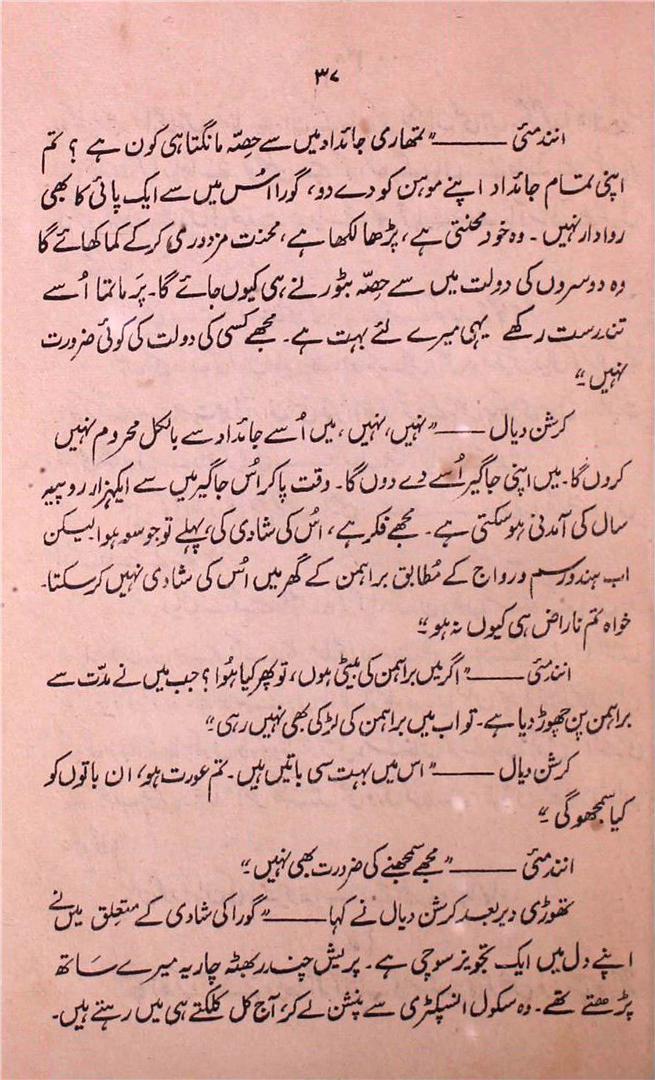 ۳۷
انندمئی ——— "تمھاری جائداد میں سے حصّہ مانگتا ہی کون ہے ؟ تم
اپنی تمام جائداد اپنے موہن کو دے دو، گورا اُس میں سے ایک پائی کا بھی
روادار نہیں ۔ وہ خود محنتی ہے ، پڑھا لکھا ہے ، محنت مزدوری کرکے کما کھائے گا
وہ دوسروں کی دولت میں سے حصّہ بٹورنے ہی کیوں جائے گا۔ پَرماتما اُسے
تندرست رکھے یہی میرے لئے بہت ہے ۔ مجھے کسی کی دولت کی کوئی ضرورت
نہیں ۔"
کرشن دیال ——— "نہیں، نہیں ، میں اُسے جائداد سے بالکل محروم نہیں
کروں گا۔ میں اپنی جاگیر اُسے دے دوں گا۔ وقت پاکر اُس جاگیر میں سے ایکہزار روپیہ
سال کی آمدنی ہوسکتی ہے ۔ مجھے فکر ہے ، اُس کی شادی کی، پہلے تو جو سو ہوا لیکن
اب ہندو رسم و رواج کے مُطابق براہمن کے گھر میں اُس کی شادی نہیں کرسکتا۔
خواہ تم ناراض ہی کیوں نہ ہو ۔"
انندمئی ——— "اگر میں براہمن کی بیٹی ہوں، تو پھر کیا ہُوا ؟ جب میں نے مدّت سے
براہمن پن چھوڑ دیا ہے ۔ تو اب میں براہمن کی لڑکی بھی نہیں رہی ۔"
کرشن دیال ——— "اس میں بہت سی باتیں ہیں ۔ تم عورت ہو، ان باتوں کو
کیا سمجھوگی ۔"
انندمئی ——— "مجھے سمجھنے کی ضرورت بھی نہیں ۔"
تھوڑی دیر بعد کرشن دیال نے کہا ——— "گورا کی شادی کے متعلق میں نے
اپنے دل میں ایک تجویز سوچی ہے ۔ پریش چندر بھٹہ چاریہ میرے ساتھ
پڑھتے تھے ۔ وہ سکول انسپکٹری سے پنشن لے کر، آج کل کلکتے ہی میں رہتے ہیں ۔